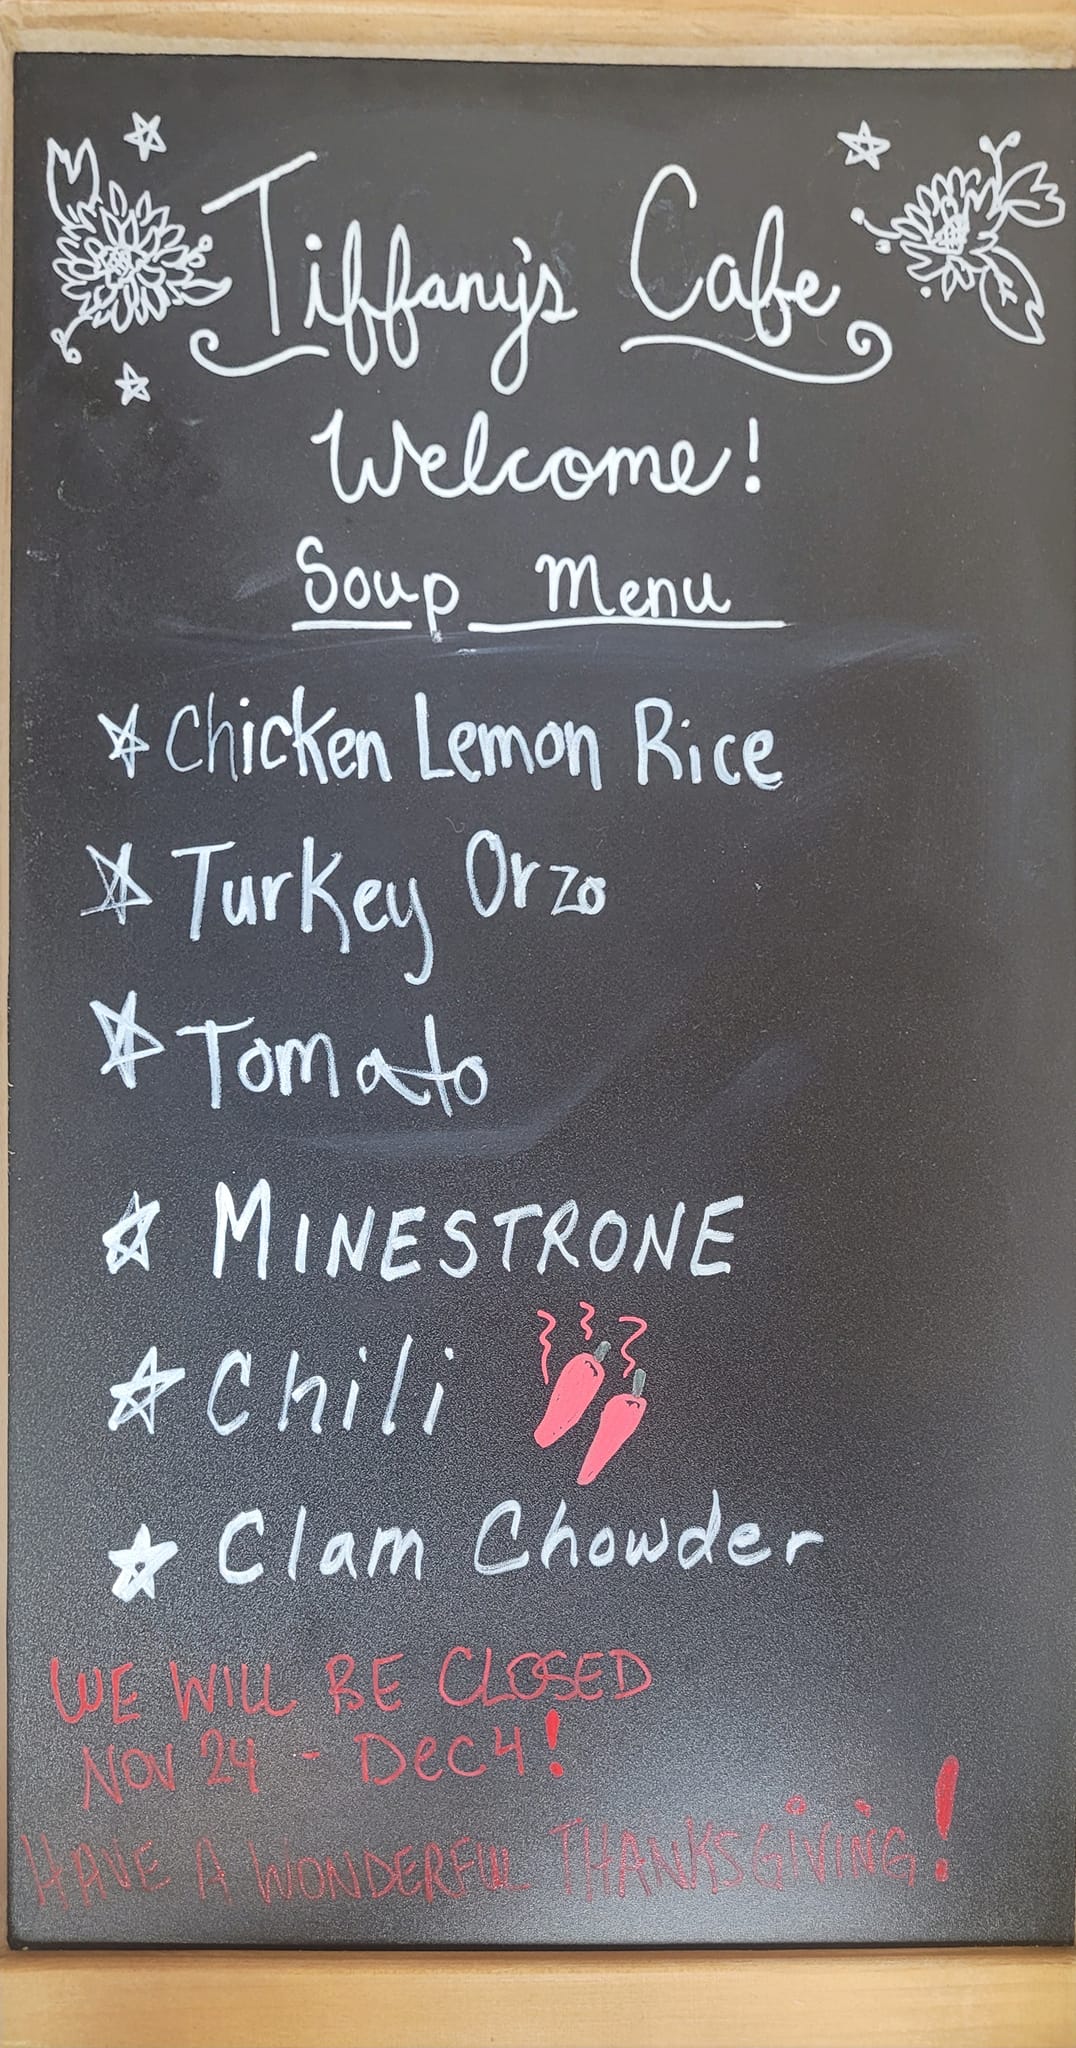 Tiffany's Cafe
Welcome!
Soup Menu
Chicken Lemon Rice
Turkey Orzo
Tomato
MINESTRONE
Chili
Clam Chowder
WE WILL BE CLOSED
NOV 24 - DEC 4!
HAVE A WONDERFUL THANKSGIVING!